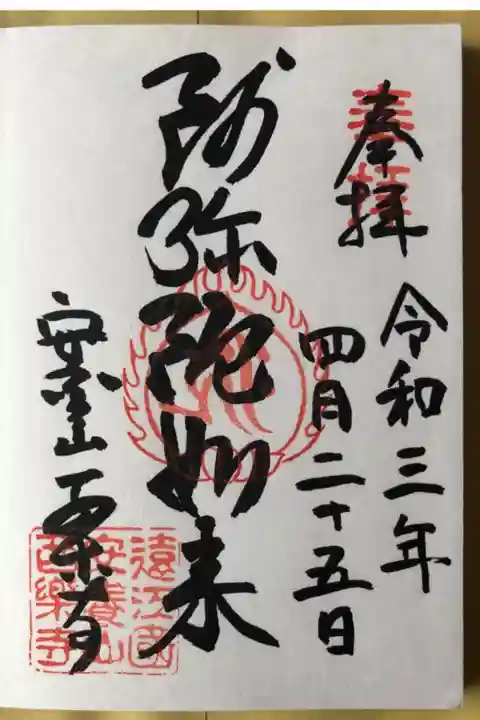 奉拝
令和三年
四月二十五日
阿弥陀如来
安養山 西楽寺
遠江國
安養山
西樂寺